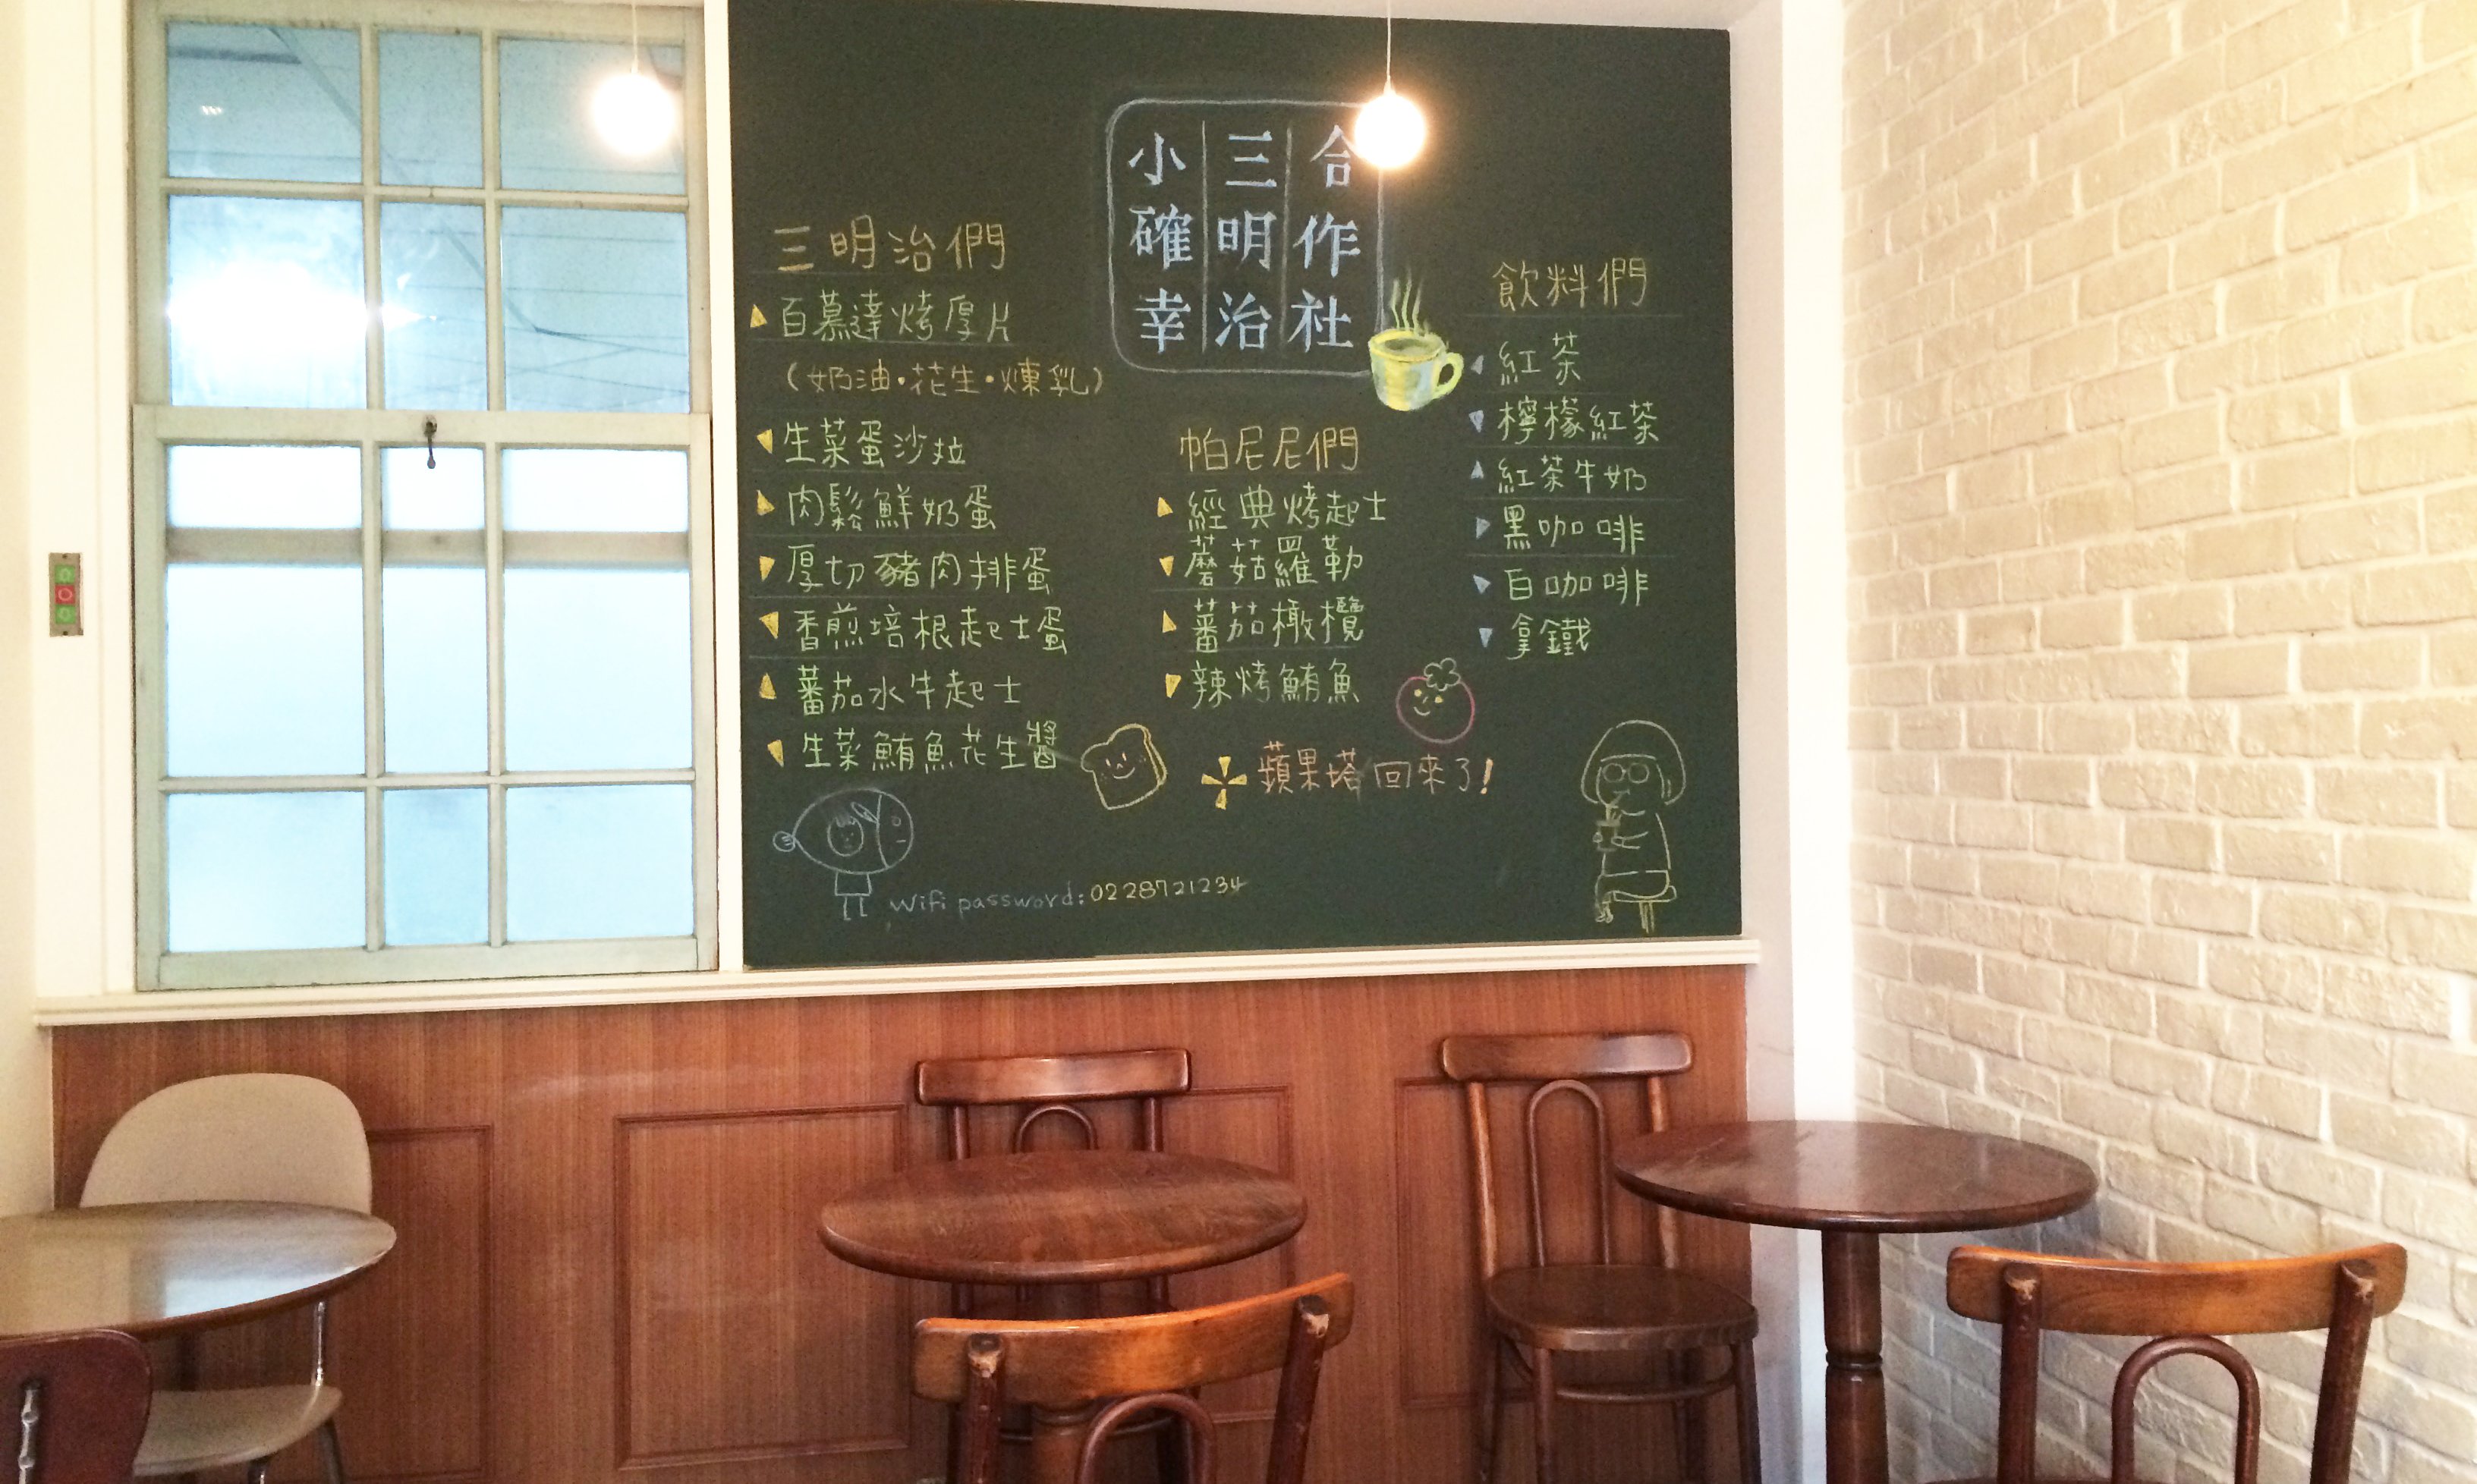 合作社
三明治
小確幸
三明治們
百慕達烤厚片
(奶油·花生·煉乳)
生菜蛋沙拉
肉鬆鮮奶蛋
厚切豬肉排蛋
香煎培根起士蛋
蕃茄水牛起士
生菜鮪魚花生醬
帕尼尼們
經典烤起士
蘑菇羅勒
蕃茄橄欖
辣烤鮪魚
蘋果塔回來了!
飲料們
紅茶
檸檬紅茶
紅茶牛奶
黑咖啡
白咖啡
拿鐵
Wifi password: 0228721234